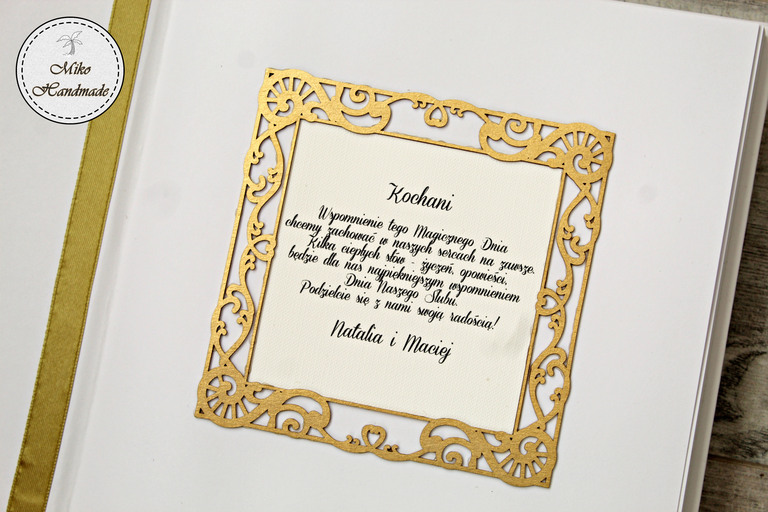 Miko
Handmade
Kochani
Wspomnienie tego Magicznego Dnia
chcemy zachować w naszych sercach na zawsze.
Kilka ciepłych słów - życzeń, opowieści,
będzie dla nas najpiękniejszym wspomnieniem
Dnia Naszego Ślubu.
Podzielcie się z nami swoją radością!
Natalia i Maciej